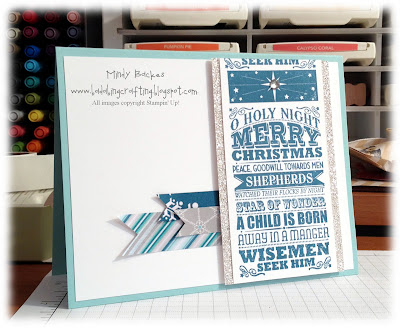 PUMPKIN PIE
CALYPSO CORAL
Mindy Backes
www.badabingcrafting.blogspot.com
All images copyright Stampin' Up!
SEEK HIM
O HOLY NIGHT
MERRY
CHRISTMAS
PEACE, GOODWILL TOWARDS MEN
SHEPHERDS
WATCHED THEIR FLOCKS BY NIGHT
STAR OF WONDER
A CHILD IS BORN
AWAY IN A MANGER
WISEMEN
SEEK HIM